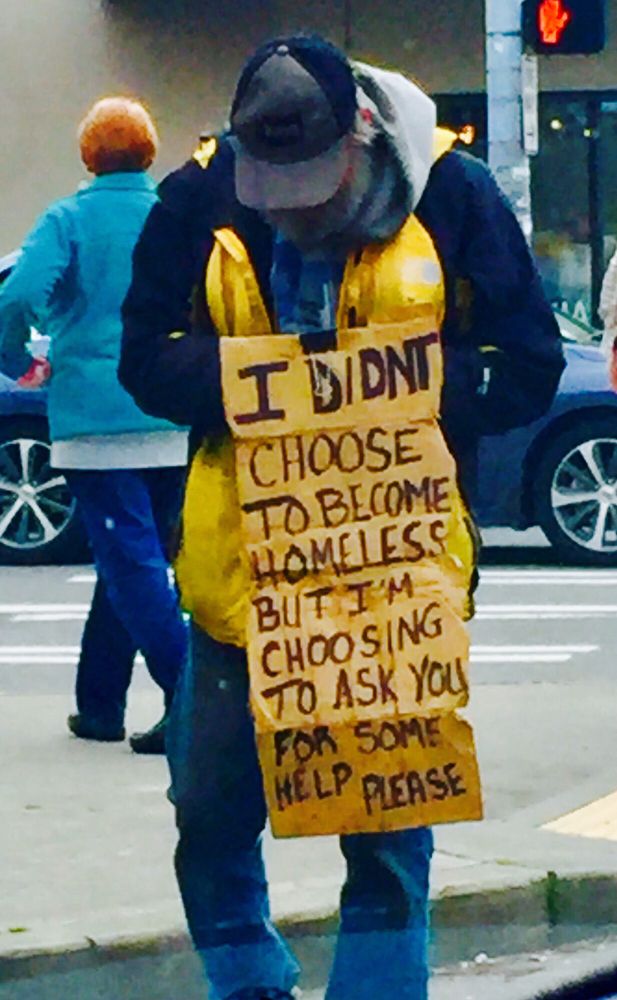 I DIDNT
CHOOSE
TO BECOME
HOMELESS
BUT I'M
CHOOSING
TO ASK YOU
FOR SOME
HELP PLEASE